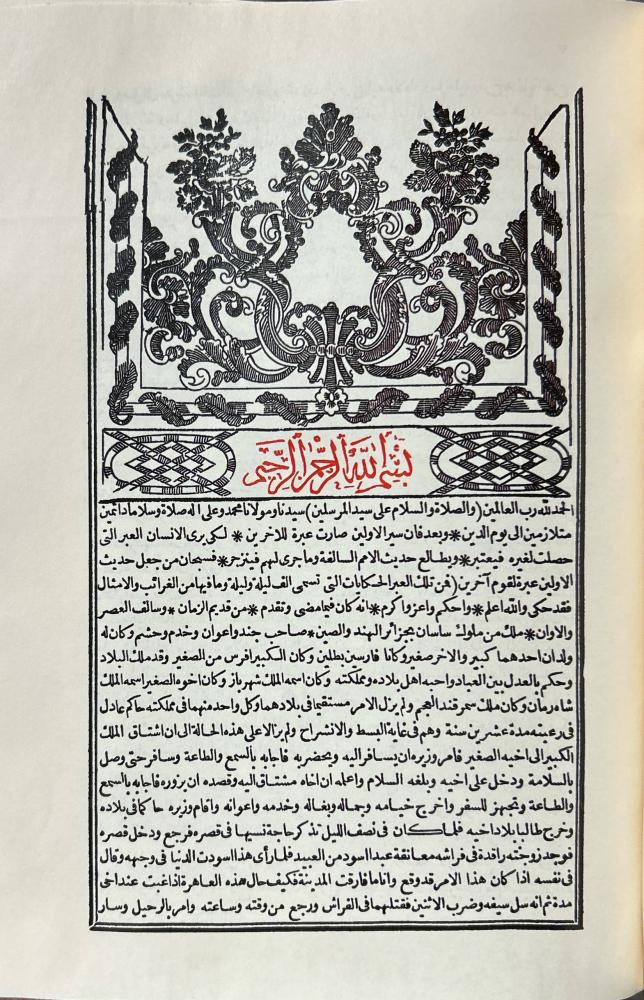 بسم الله الرحمن الرحيم
الحمد لله رب العالمين (والصلاة والسلام على سيد المرسلين) سيدنا ومولانا محمد وعلى اله صلاة وسلاما دائمين
متلازمين الى يوم الدين * وبعد فان سير الاولين صارت عبرة للاخرين * لكى يرى الانسان العبر التى
حصلت لغيره فيعتبر * ويطالع حديث الامم السالفة وما جرى لهم فينزجر * فسبحان من جعل حديث
الاولين عبرة لقوم آخرين (فمن تلك العبر الحكايات التى تسمى الف ليلة وليلة وما فيها من الغرائب والامثال
فقد حكى والله اعلم * واحكم واعز واكرم * انه كان فيما مضى وتقدم * من قديم الزمان * وسالف العصر
والاوان * ملك من ملوك ساسان بجزائر الهند والصين * صاحب جند واعوان وخدم وحشم وكان له
ولدان احدهما كبير والاخر صغير وكانا فارسين بطلين وكان الكبير افرس من الصغير وقد ملك البلاد
وحكم بالعدل بين العباد واحبه اهل بلاده ومملكته وكان اسمه الملك شهرباز وكان اخوه الصغير اسمه الملك
شاه رمان وكان ملك سمرقند العجم ولم يزل الامر مستقيما فى بلادهما وكل واحد منهما فى مملكته حاكم عادل
فى رعيته مدة عشرين سنة وهم فى غاية البسط والانشراح ولم يزالا على هذه الحالة الى ان اشتاق الملك
الكبير الى اخيه الصغير فامر وزيره ان يسافر اليه ويحضر به فاجابه بالسمع والطاعة وسافر حتى وصل
بالسلامة ودخل على اخيه وبلغه السلام واعلمه ان اخاه مشتاق اليه وقصده ان يزوره فاجابه بالسمع
والطاعة وتجهز للسفر واخرج خيامه وجماله وبغاله وخدمه واعوانه واقام وزيره حاكما فى بلاده
وخرج طالبا بلاد اخيه فلما كان فى نصف الليل تذكر حاجة نسيها فى قصره فرجع ودخل قصره
فوجد زوجته راقدة فى فراشه معانقة عبدا اسود من العبيد فلما رأى هذا اسودت الدنيا فى وجهه وقال
فى نفسه اذا كان هذا الامر قد وقع وانا ما فارقت المدينة فكيف حال هذه العاهرة اذا غبت عند اخى
مدة ثم انه سل سيفه وضرب الاثنين فقتلهما فى الفراش ورجع من وقته وساعته وامر بالرحيل وسار